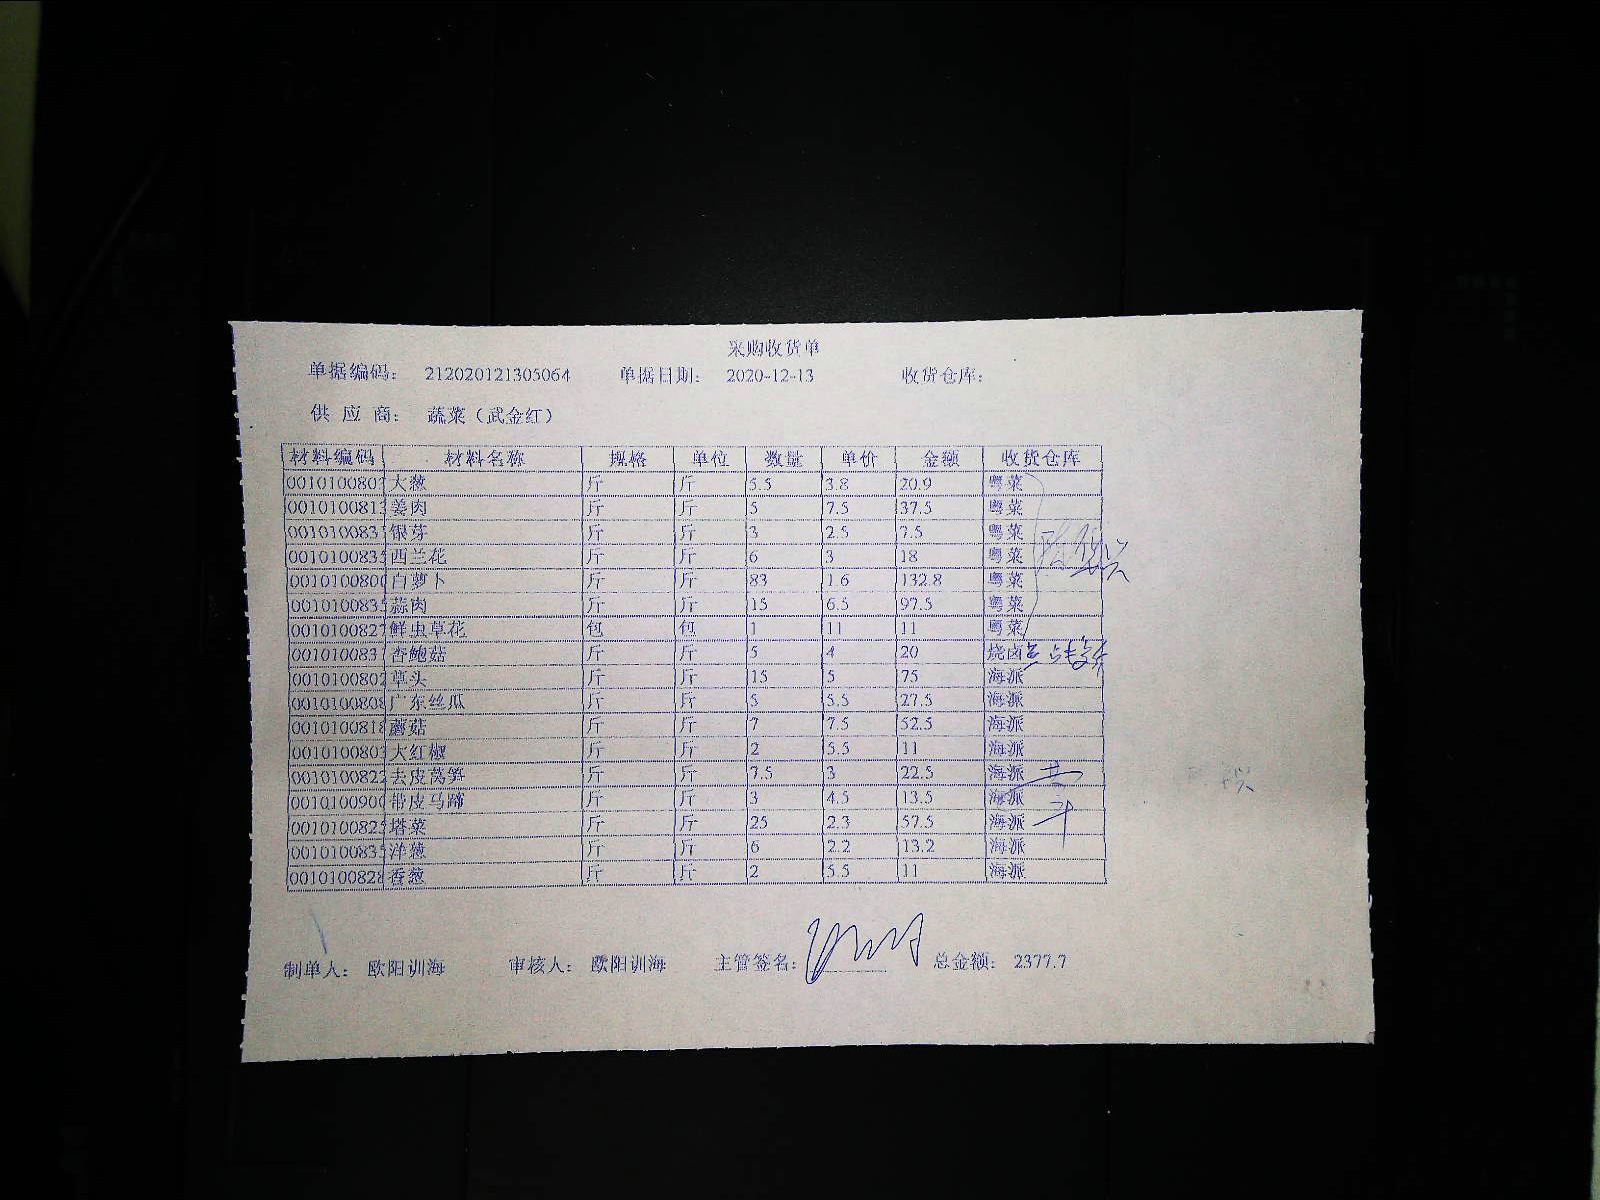 采购收货单
单据编码: 212020121305064 单据日期: 2020-12-13 收货仓库:
供 应 商: 蔬菜（武金红）
材料编码 材料名称 规格 单位 数量 单价 金额 收货仓库
0010100803 大葱 斤 斤 5.5 3.8 20.9 粤菜
001010081 姜肉 斤 斤 5 7.5 37.5 粤菜
001010083 银芽 斤 斤 3 2.5 7.5 粤菜
001010083 西兰花 斤 斤 6 3 18 粤菜
001010080 白萝卜 斤 斤 83 1.6 132.8 粤菜
001010083 蒜肉 斤 斤 15 6.5 97.5 粤菜
001010082 鲜虫草花 包 包 1 11 11 粤菜
001010083 杏鲍菇 斤 斤 5 4 20 烧卤
001010080 草头 斤 斤 15 5 75 海派
001010080 广东丝瓜 斤 斤 5 5.5 27.5 海派
001010081 蘑菇 斤 斤 7 7.5 52.5 海派
001010080 大红椒 斤 斤 2 5.5 11 海派
001010082 去皮莴笋 斤 斤 7.5 3 22.5 海派
001010090 带皮马蹄 斤 斤 3 4.5 13.5 海派
001010082 塔菜 斤 斤 25 2.3 57.5 海派
001010083 洋葱 斤 斤 6 2.2 13.2 海派
001010082 香葱 斤 斤 2 5.5 11 海派
制单人: 欧阳训海 审核人: 欧阳训海 主管签名: 总金额: 2377.7